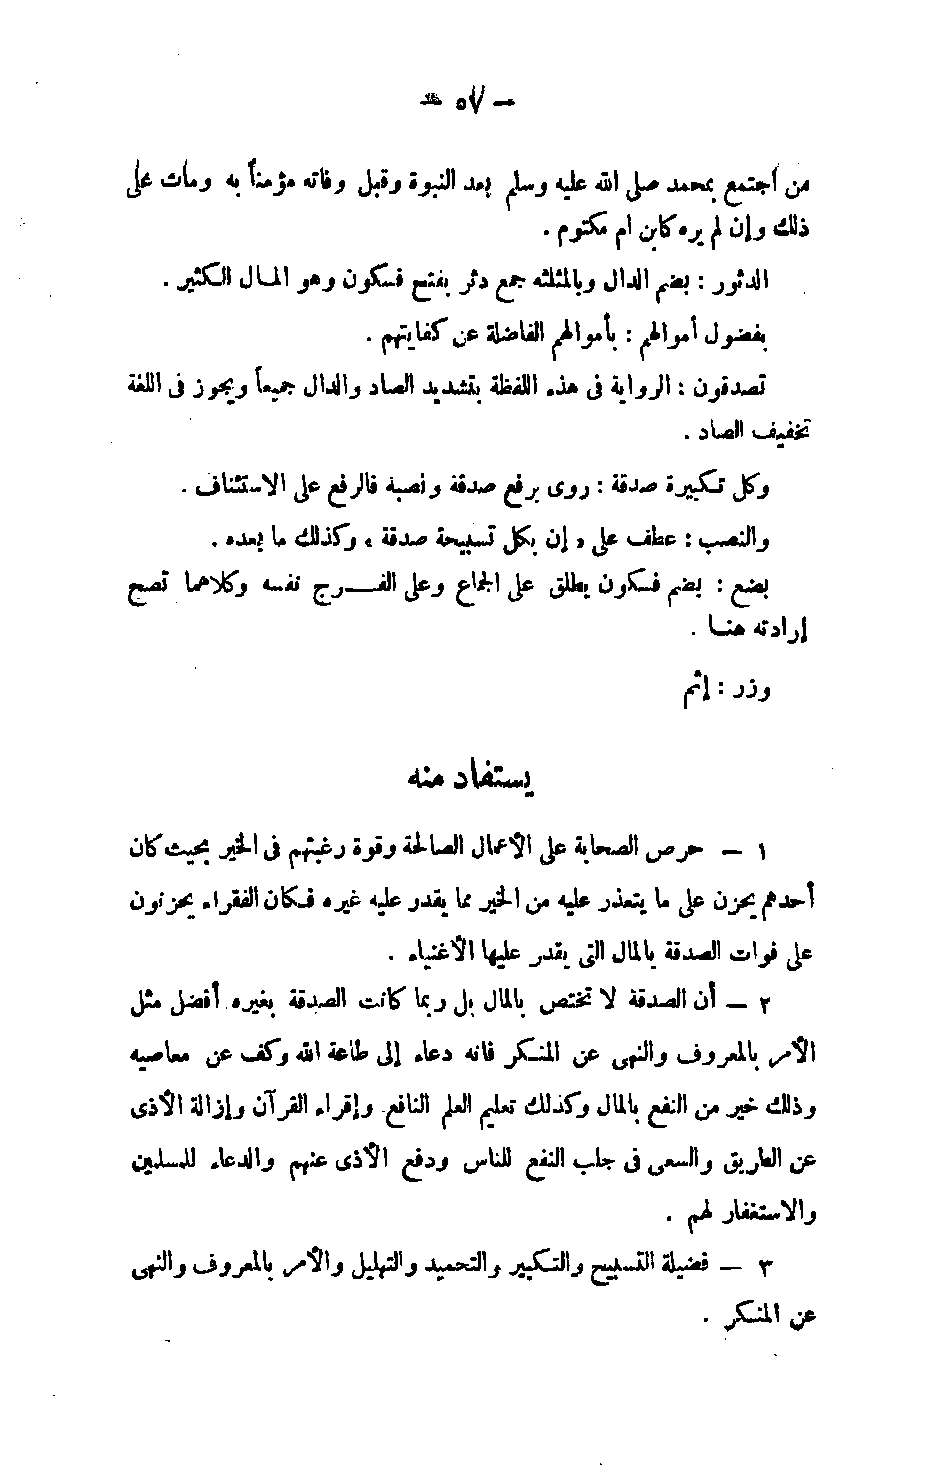 — ٥٧ —
من اجتمع بمحمد صلى الله عليه وسلم بعد النبوة وقبل وفاته مؤمناً به ومات على
ذلك وإن لم يره كابن ام مكتوم .
الدثور : بضم الدال وبالمثلثه جمع دثر بفتح فسكون وهو المال الكثير .
بفضول أموالهم : بأموالهم الفاضلة عن كفايتهم .
تصدقون : الرواية فى هذه اللفظة بتشديد الصاد والدال جميعاً ويجوز فى اللغة
تخفيف الصاد .
وكل تكبيرة صدقة : روى برفع صدقة ونصبه فالرفع على الاستئناف .
والنصب : عطف على « إن بكل تسبيحة صدقة » وكذلك ما بعده .
بضع : بضم فسكون يطلق على الجماع وعلى الفـــرج نفسه وكلاهما تصح
إرادته هنا .
وزر : إثم
يستفاد منه
١ — حرص الصحابة على الأعمال الصالحة وقوة رغبتهم فى الخير بحيث كان
أحدهم يحزن على ما يتعذر عليه من الخير مما يقدر عليه غيره فكان الفقراء يحزنون
على فوات الصدقة بالمال التى يقدر عليها الأغنياء .
٢ — أن الصدقة لا تختص بالمال بل ربما كانت الصدقة بغيره أفضل مثل
الأمر بالمعروف والنهى عن المنكر فانه دعاء إلى طاعة الله وكف عن معاصيه
وذلك خير من النفع بالمال وكذلك تعليم العلم النافع وإقراء القرآن وإزالة الأذى
عن الطريق والسعى فى جلب النفع للناس ودفع الأذى عنهم والدعاء للمسلمين
والاستغفار لهم .
٣ — فضيلة التسبيح والتكبير والتحميد والتهليل والأمر بالمعروف والنهى
عن المنكر .